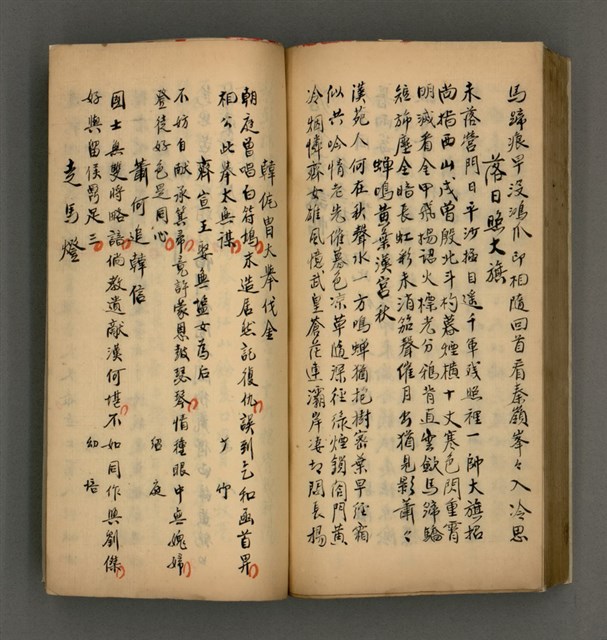 馬蹄痕早沒鴻爪印相隨回首看秦嶺峯々入冷思
落日照大旗
未落營門日平沙極目遙千軍殘照裡一師大旗招
尚指西山戍曾殷北斗杓暮煙橫十丈寒色閃重霄
明滅看金甲飛揚認火標光分鴉背直雲斂馬蹄驕
短旆塵全暗長虹彩未消笳聲催月出猶見影蕭々
蟬鳴黃葉漢宮秋
漢苑人何在秋聲水一方鳴蟬猶抱樹密葉早經霜
似共吟情老先催暮色涼草隨深徑綠煙鎖閤門黃
冷烟憐齊女雄風憶武皇蒼茫連灞岸淒切間長楊
韓侂胄大舉伐金
朝庭曾唱白符鳩末造居然託復仇誤到乞和函首畀
相公此舉太無謀 芳竹
齊宣王娶無鹽女為后
不妨自献承箕帚竟許蒙恩鼓瑟琴情種眼中無媿婦
登徒好色是同心 鯉庭
蕭何追韓信
國士無雙將略諳倘教遺献漢何堪不如同作興劉傑
好與留侯鼎足三 幼培
走馬燈